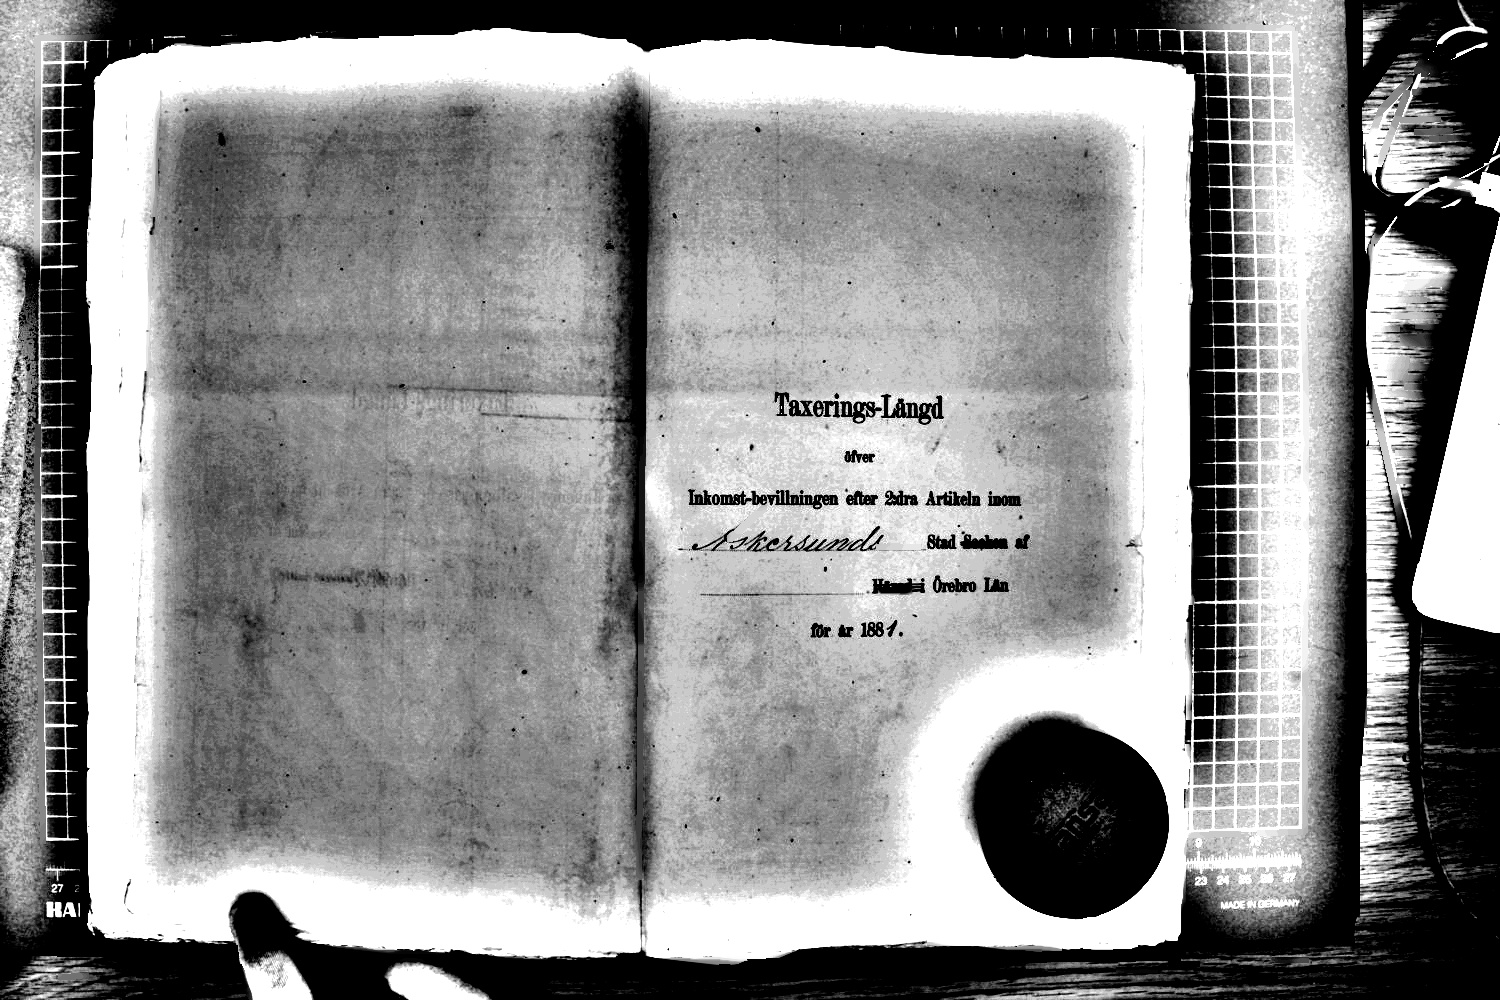 Taxerings-Längd
öfver
Inkomst-bevillningen efter 2:dra Artikeln inom
Askersunds Stad Socken af
Härad i Örebro Län
för år 1881.
27
HA
23 24 25 26 27
MADE IN GERMANY